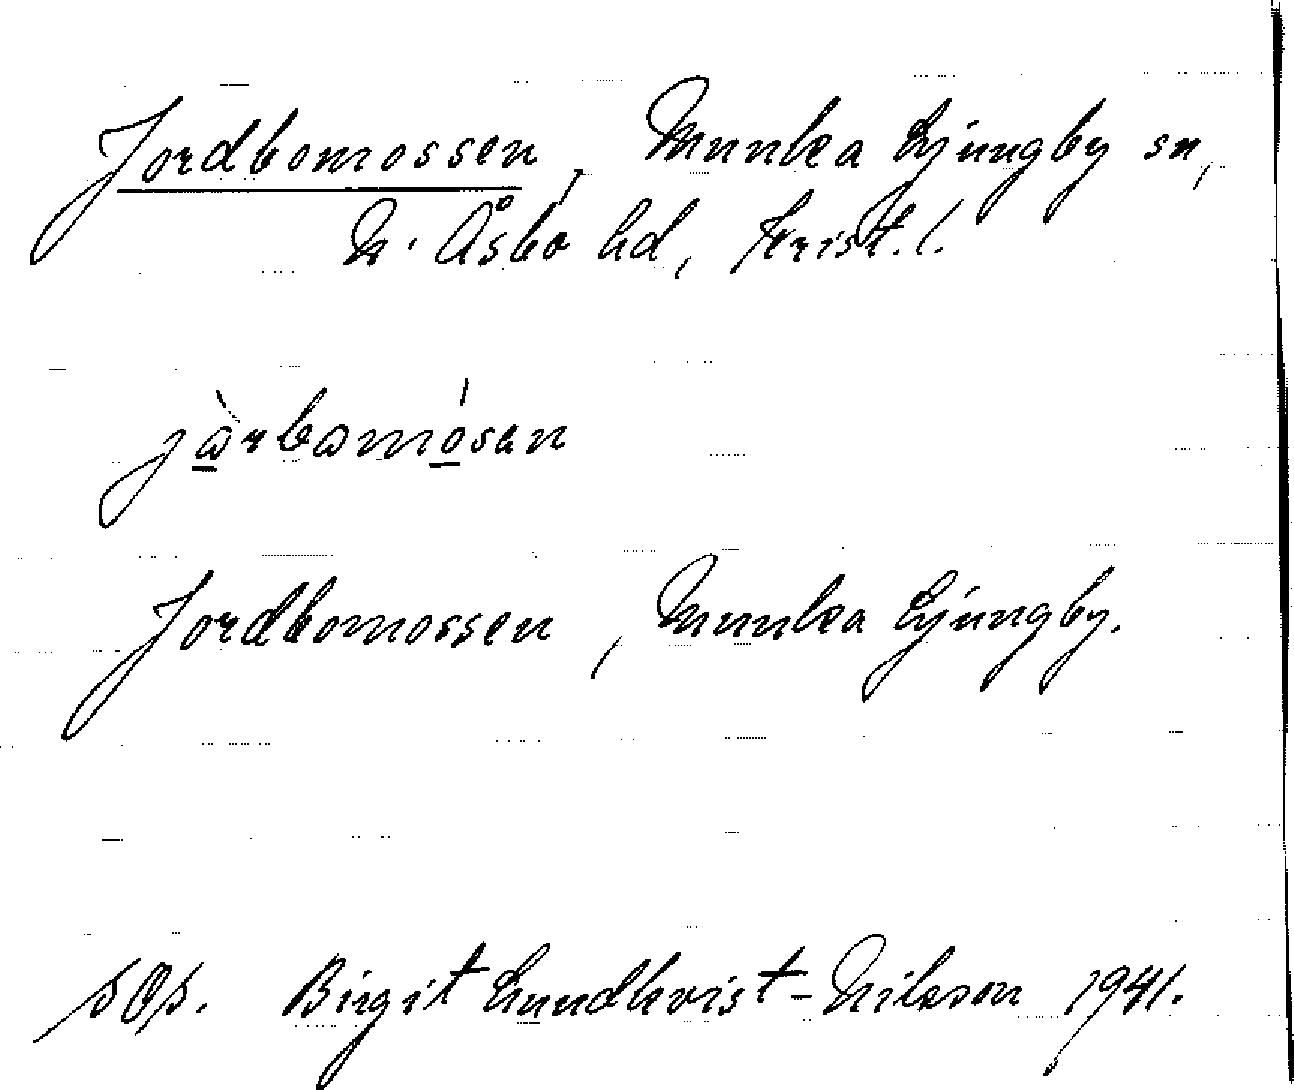 Jordbomossen, Munka Ljungby sn,
N. Åsbo hd, Krist. l.
Jordbomossen, Munka Ljungby.
Birgit Lundkvist-Nilsson 1941.